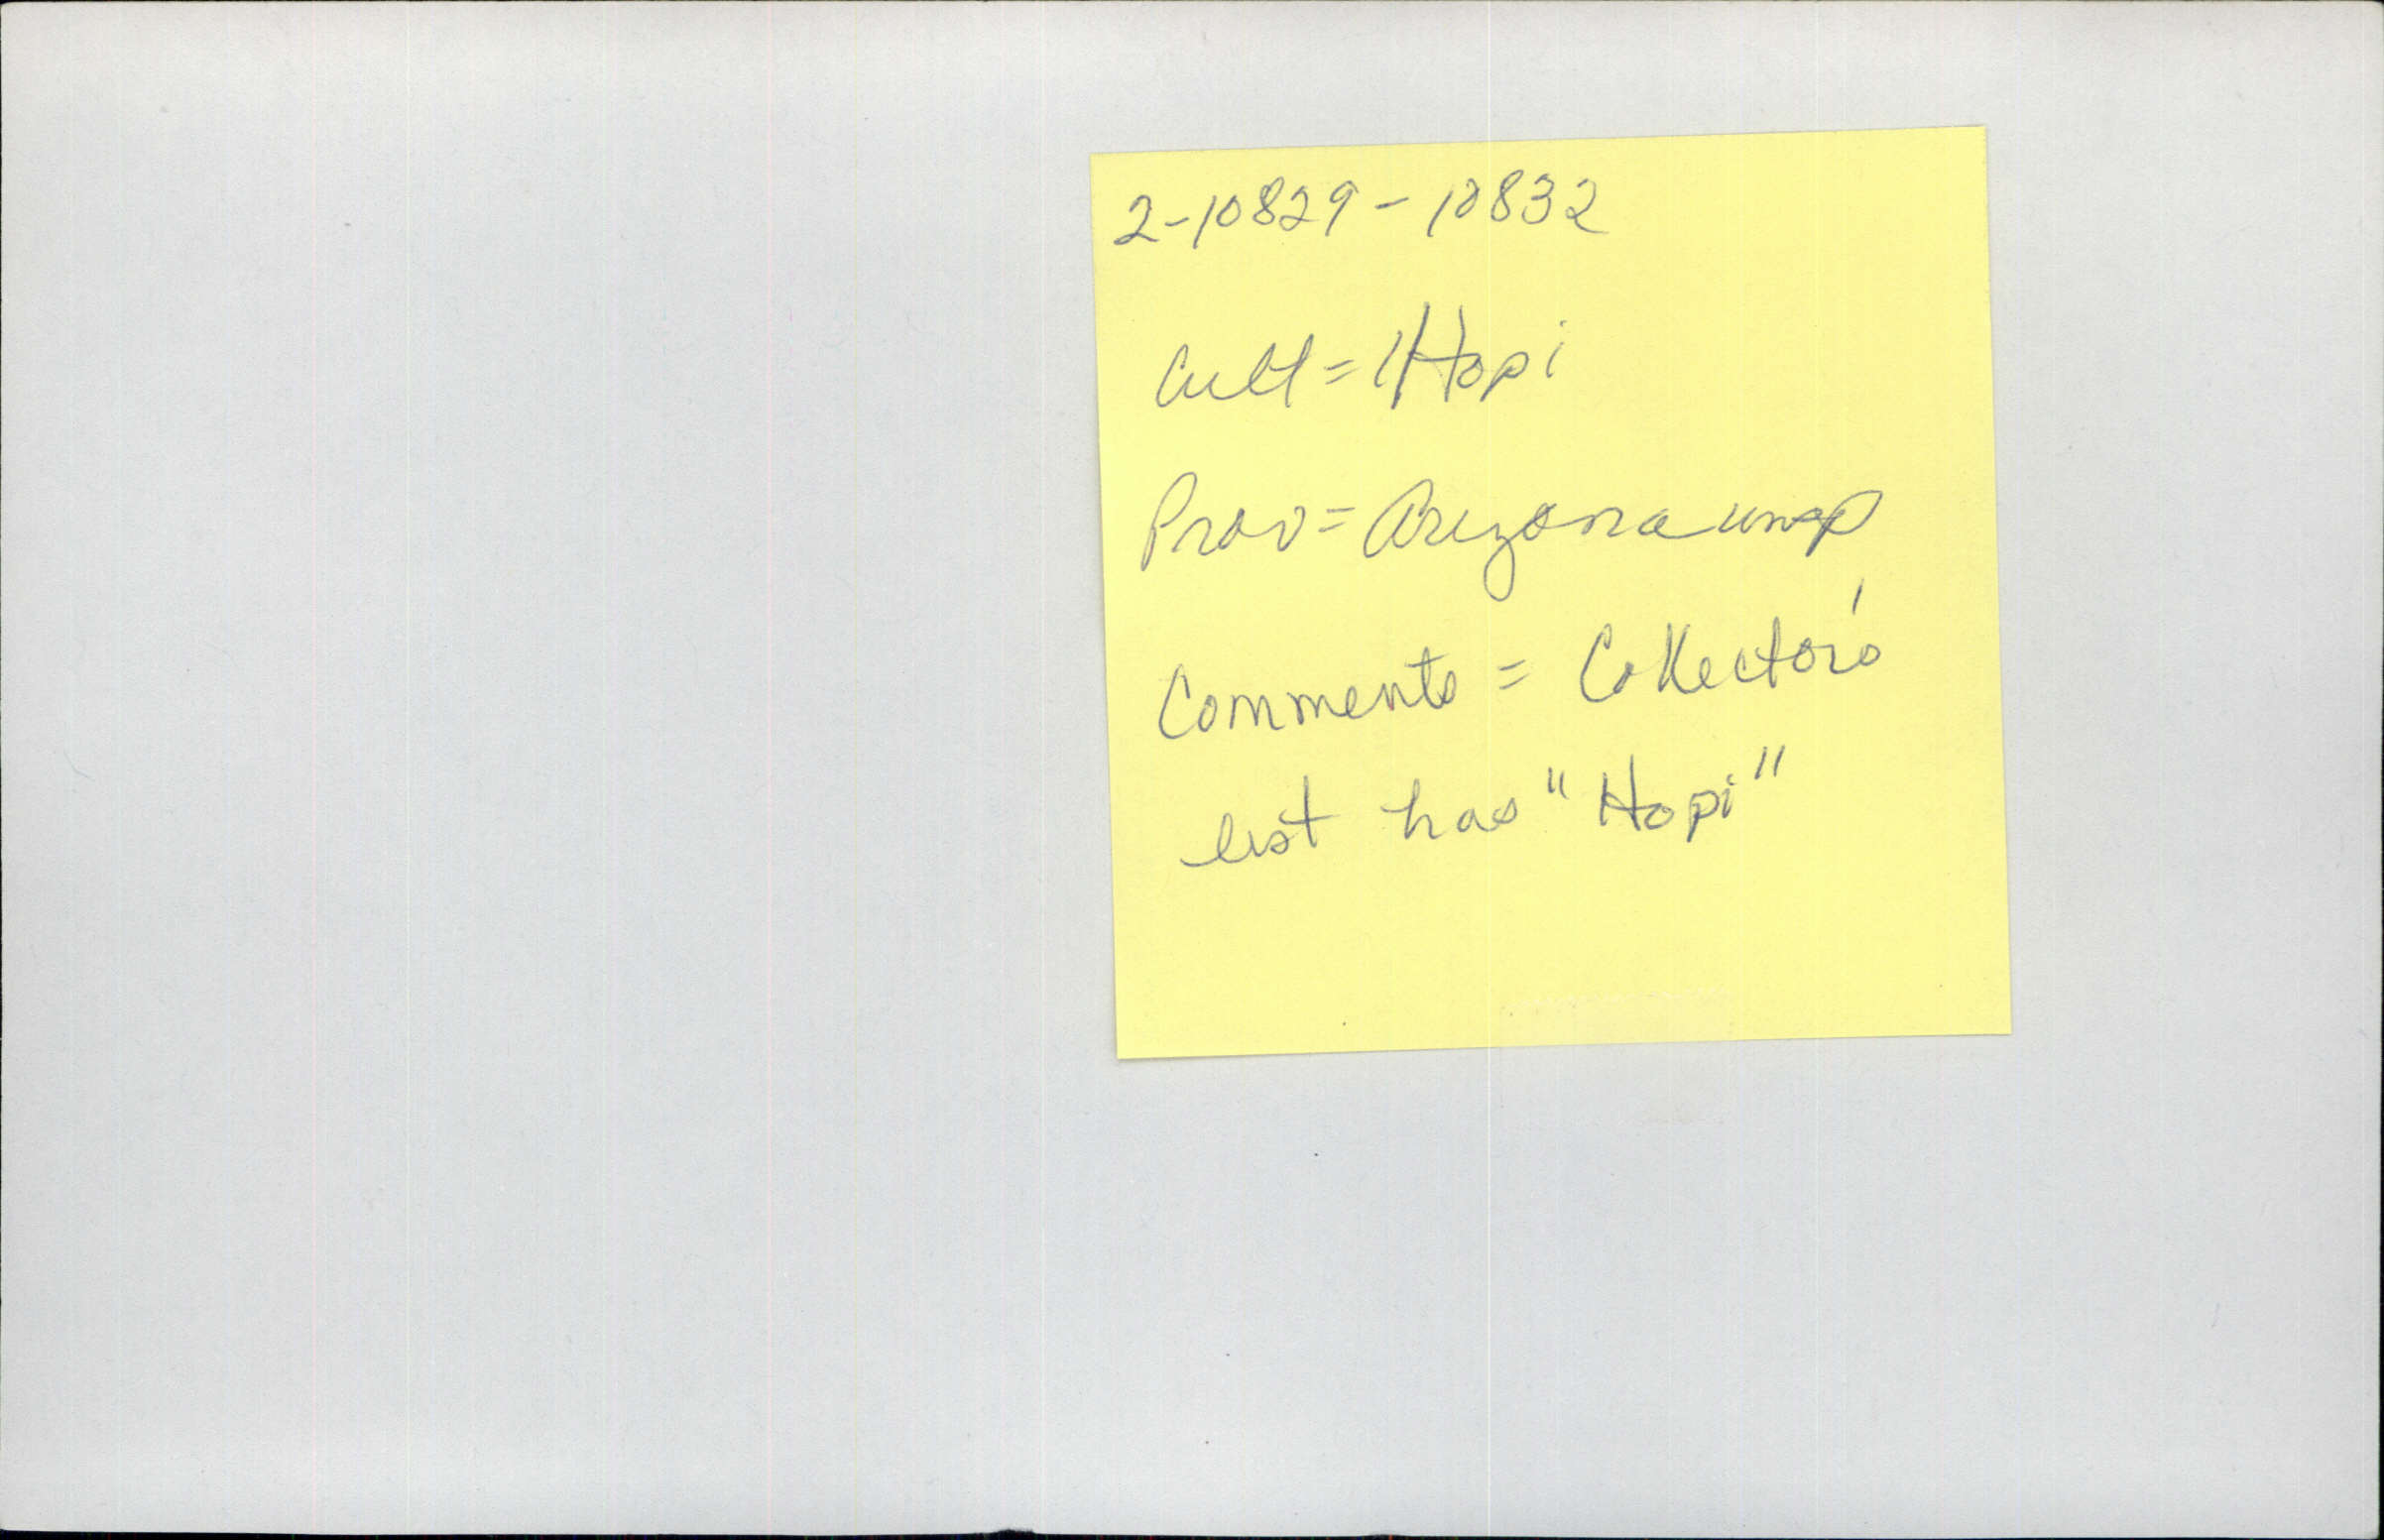 2-10829-10832
Cult = Hopi
Prov = Arizona unsp
Comments = Collector's
list has "Hopi"